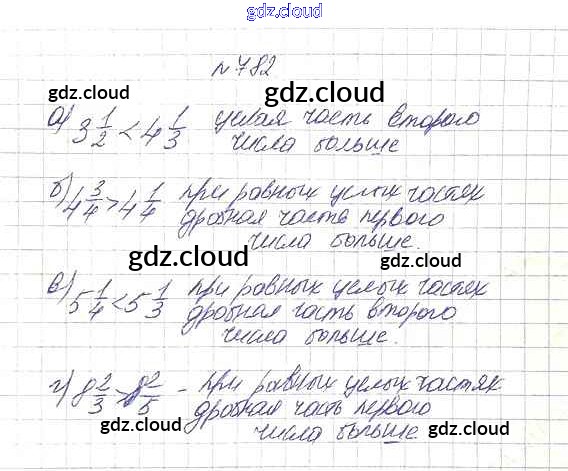 gdz.cloud
№ 782
gdz.cloud gdz.cloud
а) 3 1/2 < 4 1/3 целая часть второго
числа больше
gdz.cloud gdz.cloud
б) 4 3/4 > 4 1/4 при равных целых частях
дробная часть первого
числа больше.
gdz.cloud gdz.cloud
в) 5 1/4 < 5 1/3 при равных целых частях
дробная часть второго
числа больше.
gdz.cloud gdz.cloud
г) 8 2/3 > 8 2/5 - при равных целых частях
дробная часть первого
числа больше.
gdz.cloud gdz.cloud